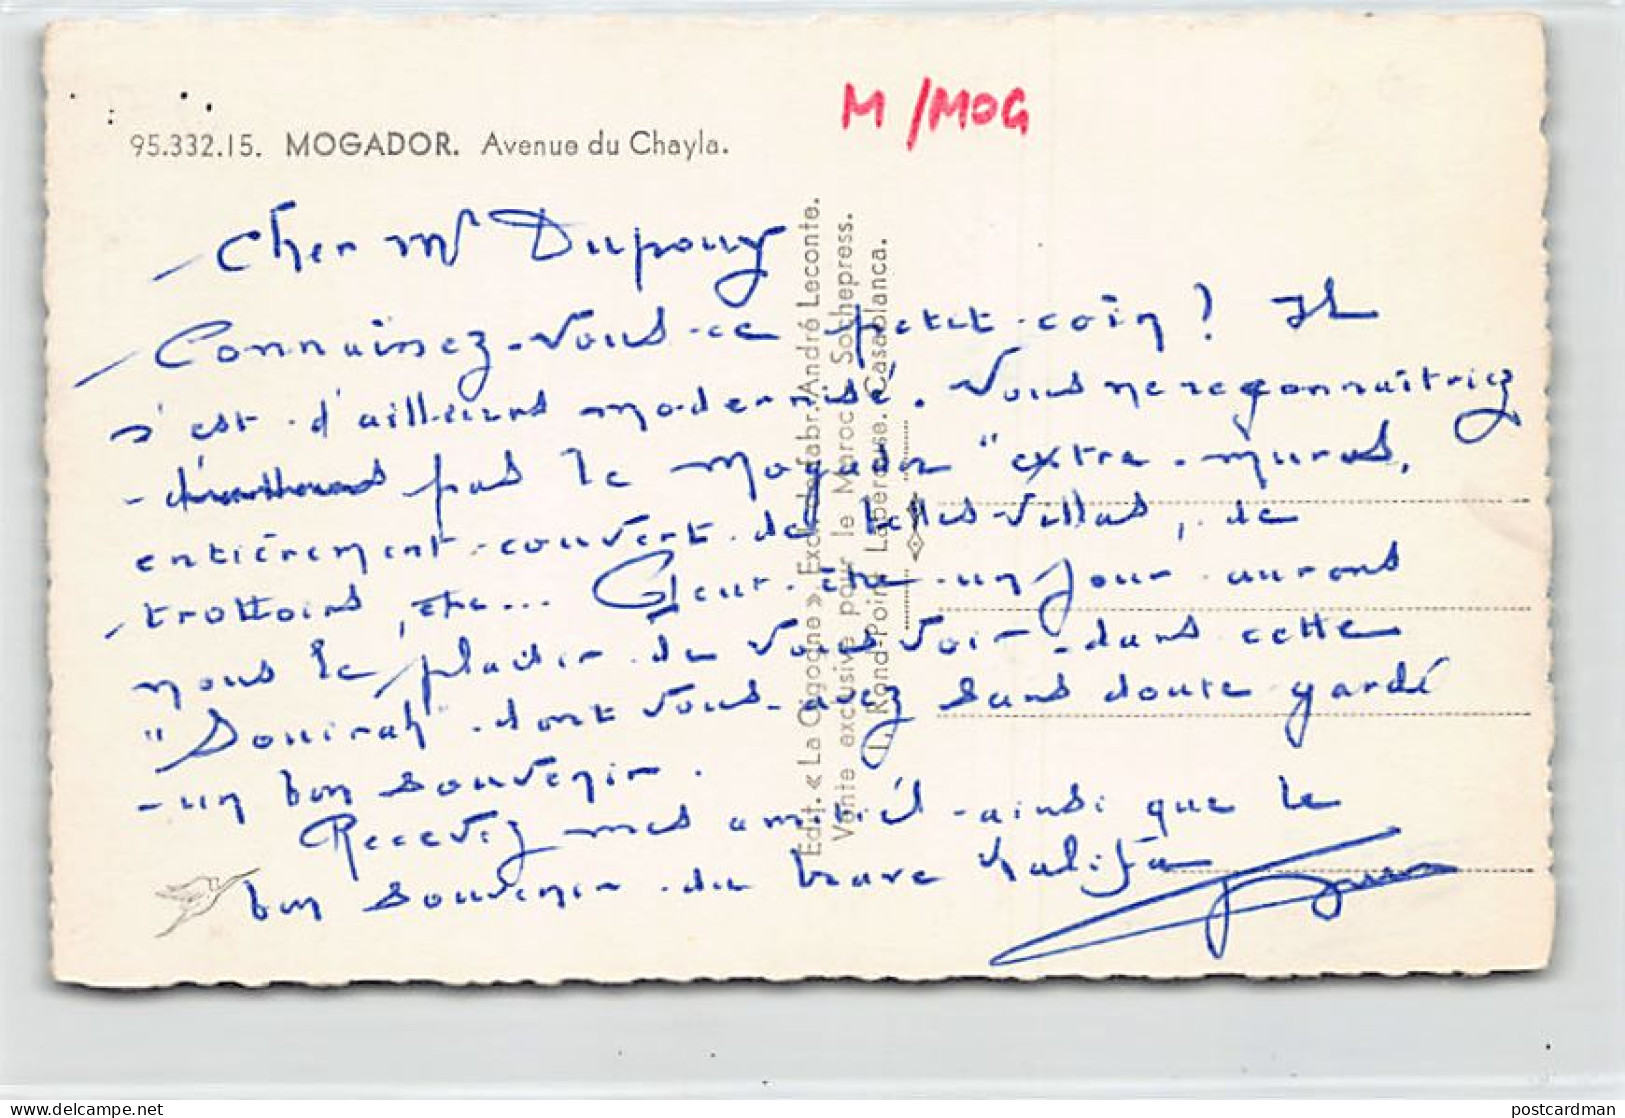 M/MOG
95.332.15. MOGADOR. Avenue du Chayla.
Cher Mr Dupouy
Connaissez-vous ce petit coin ? Il
s'est d'ailleurs modernisé. Vous ne reconnaîtriez
pas le Mogador "extra-muros,
entièrement couvert de belles villas, de
trottoirs, etc... Peut-être un jour aurons
nous le plaisir de vous voir dans cette
"Souirah" dont vous avez sans doute gardé
un bon souvenir.
Recevez mes amitiés ainsi que le
bon souvenir du brave Khalifa
Edit. « La Cigogne ». Excl. de fabr. André Leconte.
Vente exclusive pour le Maroc Sochepress.
1, Rond-Point Laperouse. Casablanca.
postcardman